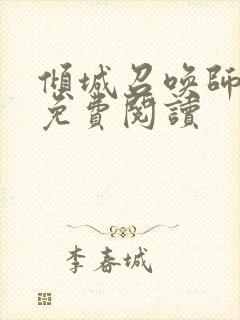 傾城召喚師
免費閱讀
李春城